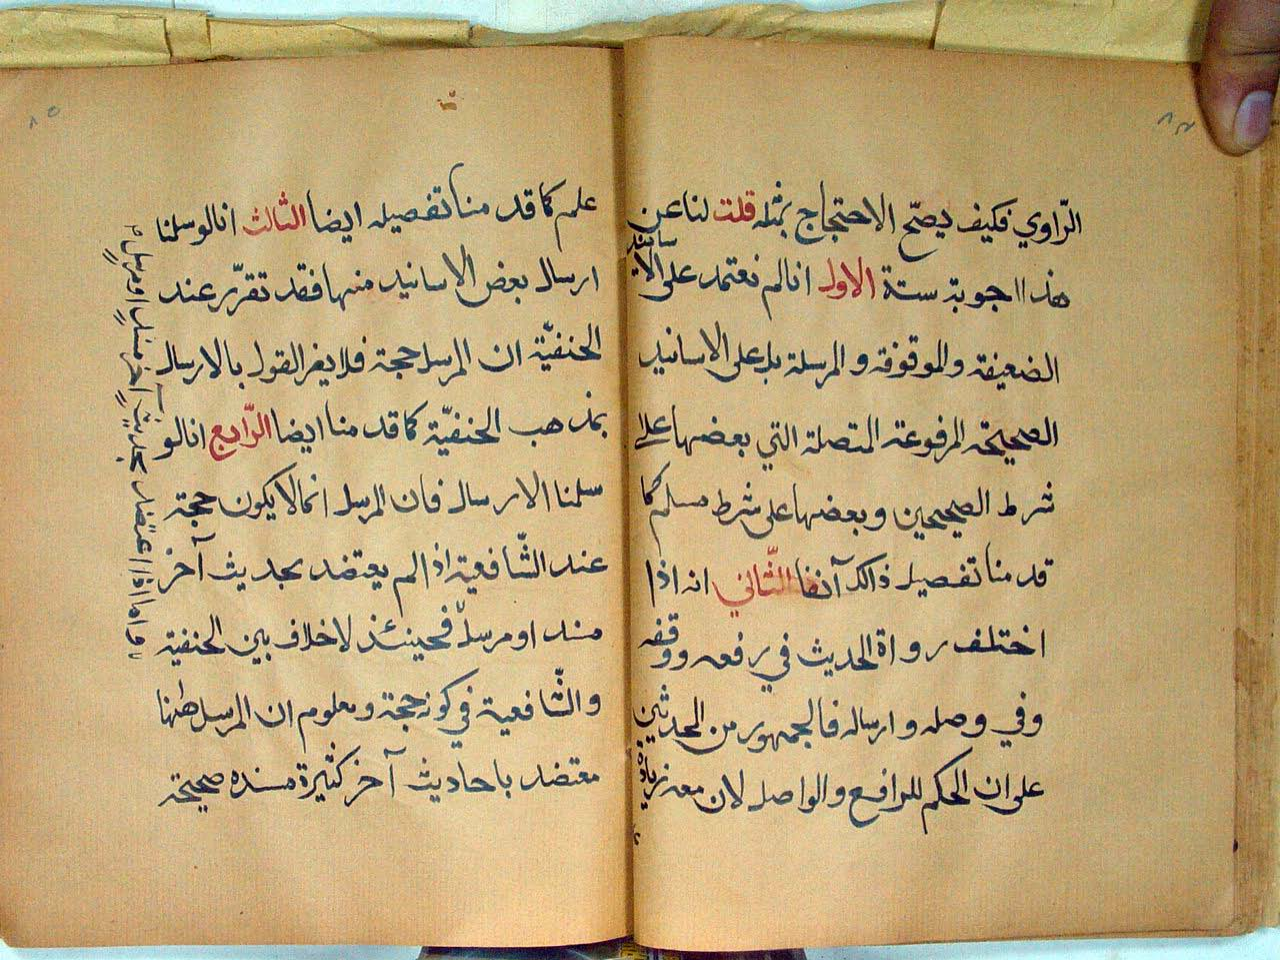 ٨٤
الرّاوي فكيف يصحّ الاحتجاج بمثله قلت لنا عن
هذا اجوبة ستة الاول انا لم نعتمد على الاسانيد
الضعيفة والموقوفة والمرسلة بل على الاسانيد
الصحيحة المرفوعة المتصلة التي بعضها على
شرط الصحيحين وبعضها على شرط مسلم كما
قدمنا تفصيل ذالك آنفا الثّاني انه اذا
اختلف رواة الحديث في رفعه ووقفه
وفي وصله وارساله فالجمهور من المحدثين
على ان الحكم للرافع والواصل لان معه زيادة
٨٥
علم كما قدمنا تفصيله ايضا الثالث انا لو سلمنا
ارسال بعض الاسانيد منها فقد تقرّر عند
الحنفيّة ان المرسل حجة فلا يضر القول بالارسال
بمذهب الحنفيّة كما قدمنا ايضا الرّابع انا لو
سلمنا الارسال فان المرسل انما لا يكون حجة
عند الشّافعية اذا لم يعتضد بحديث آخر
مسند او مرسل فحينئذ لا خلاف بين الحنفية
والشّافعية في كونه حجة ومعلوم ان المرسل ههنا
معتضد باحاديث آخر كثيرة مسنده صحيحة
واما اذا اعتضد بحديثٍ آخر مسندٍ او مرسلٍ